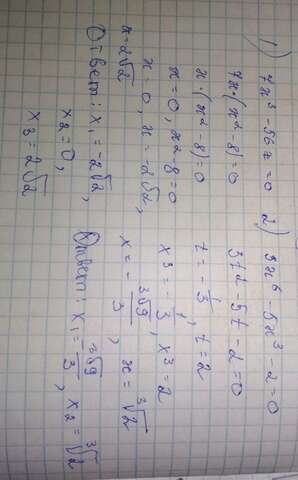 1) 7x³-56x=0
7x·(x²-8)=0
x·(x²-8)=0
x=0, x²-8=0
x=0, x=-2√2,
x=2√2
Ответ: x₁=-2√2,
x₂=0,
x₃=2√2
2) 3x⁶-5x³-2=0
3t²-5t-2=0
t=-1/3, t=2
x³=-1/3, x³=2
x=-∛9/3, x=∛2
Ответ: x₁=-∛9/3, x₂=∛2